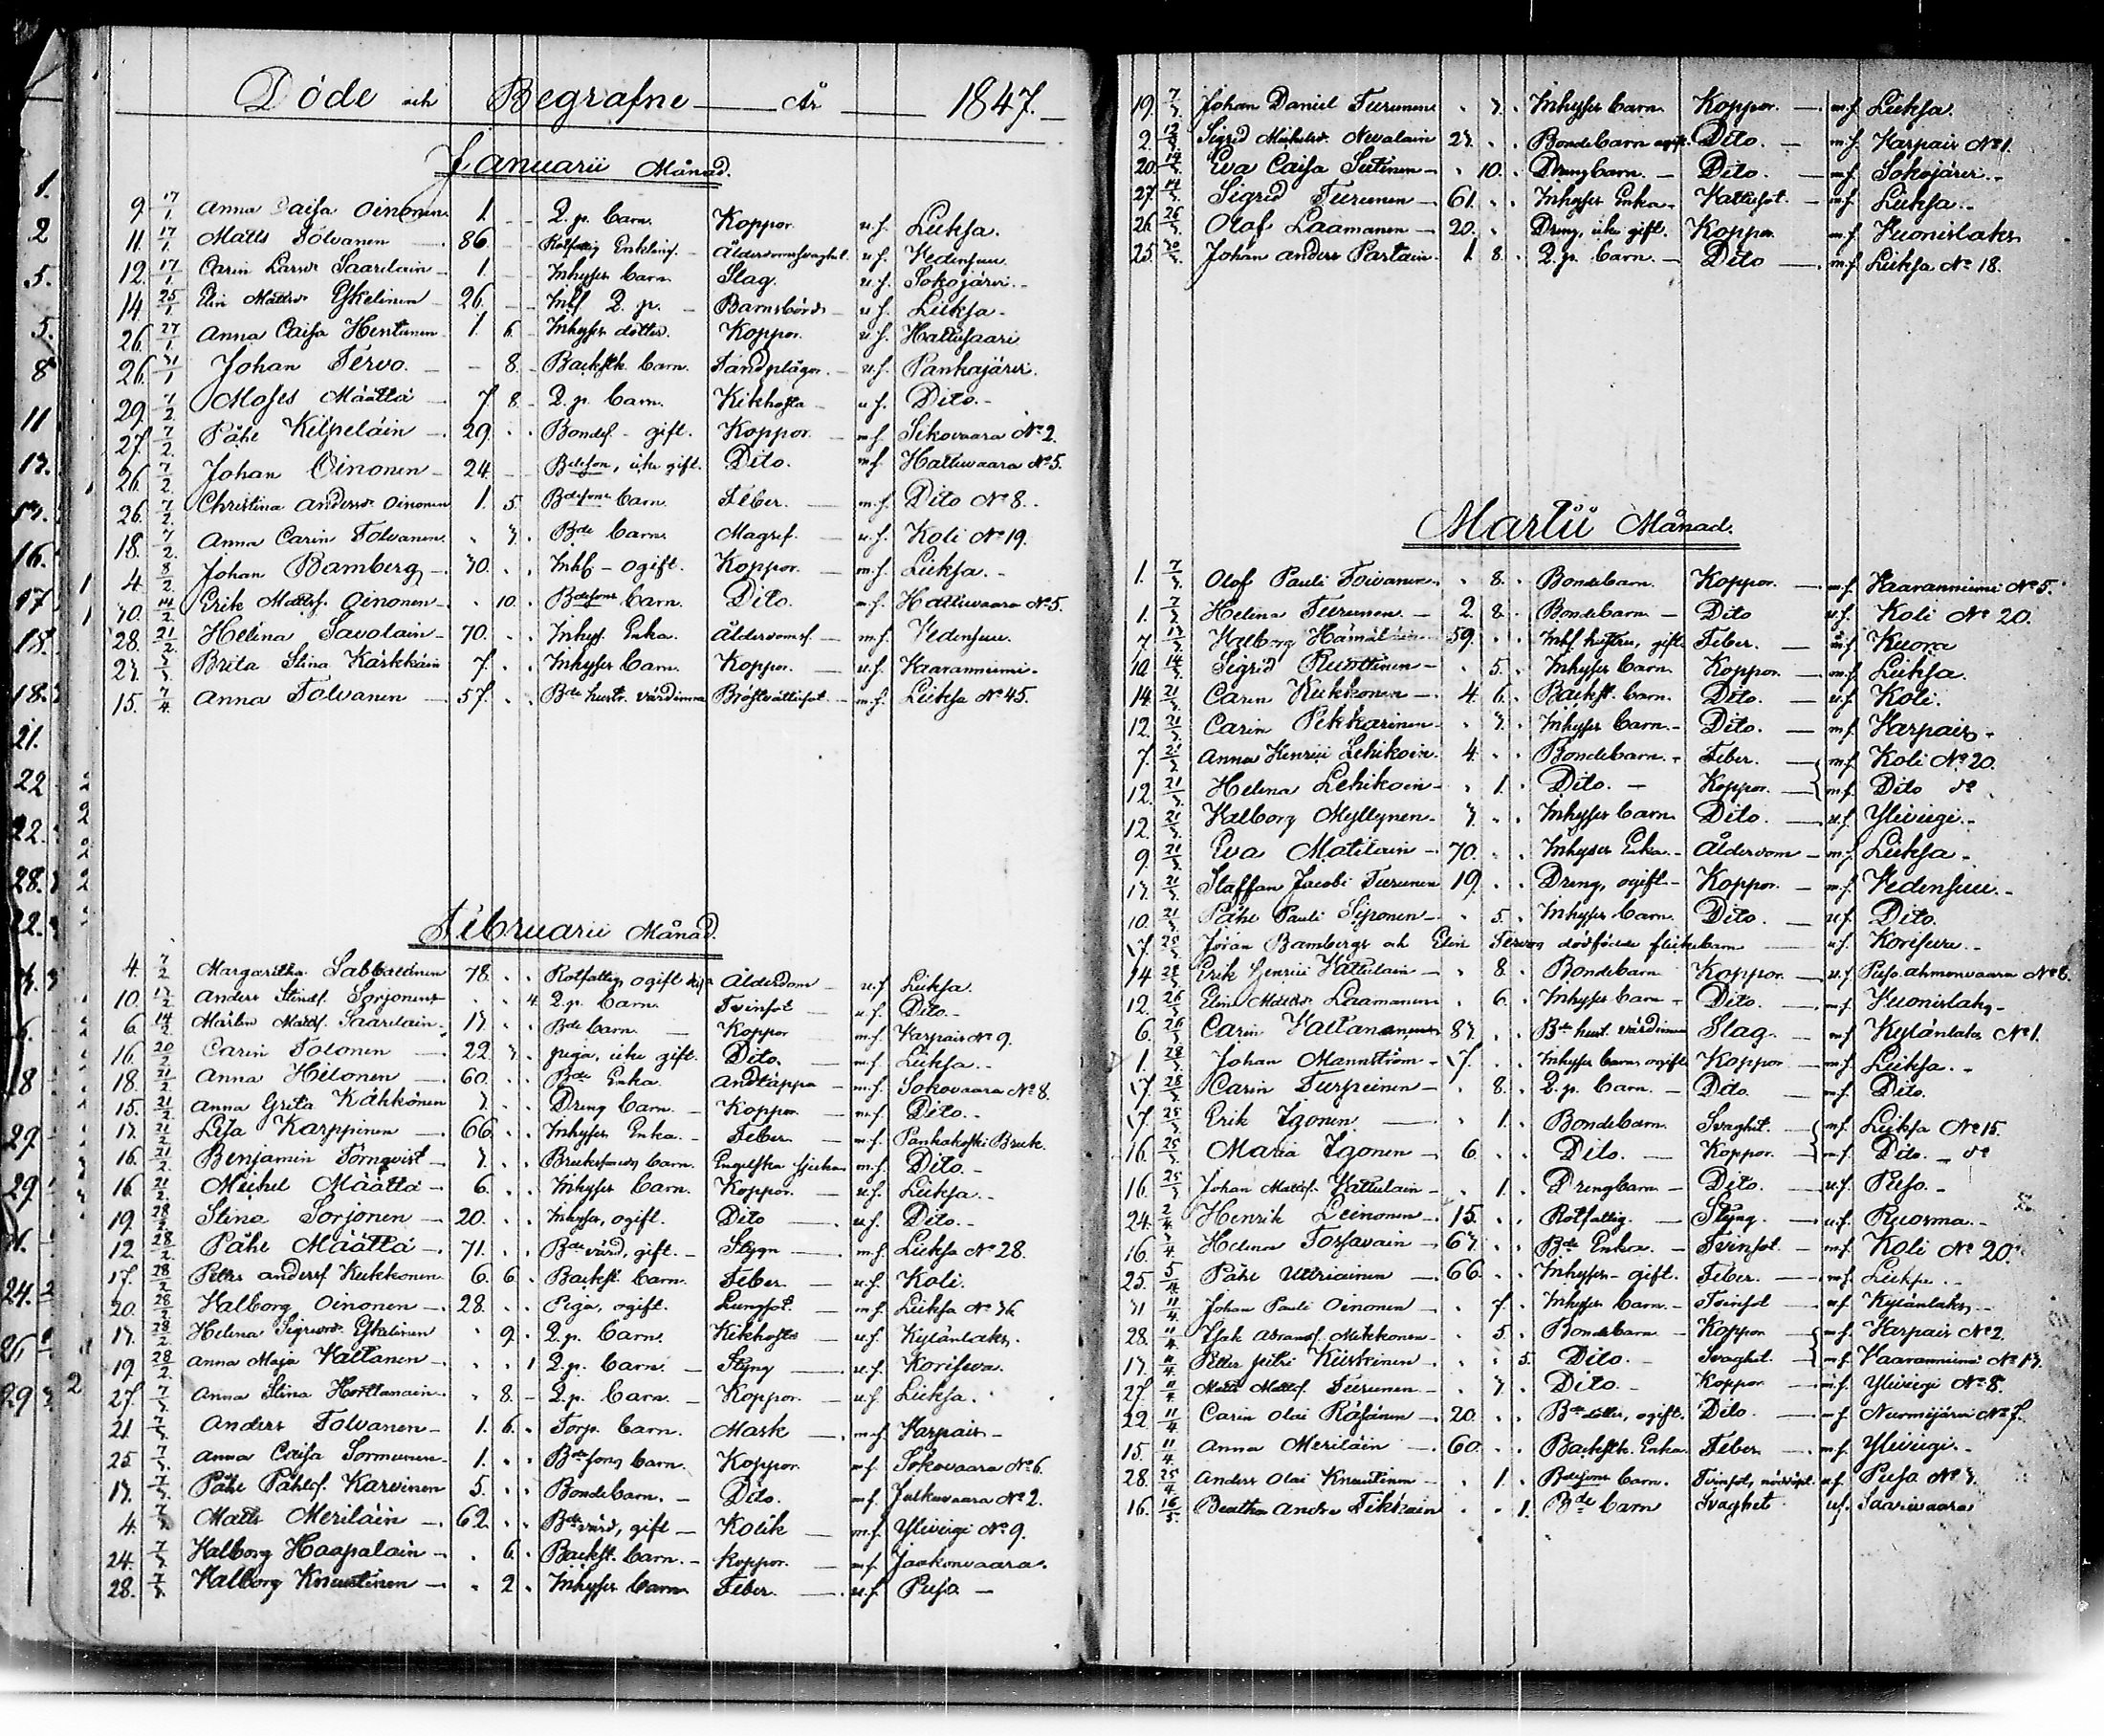 Döde och Begrafne År 1847.
Januarii Månad.
9. 17/1. Anna Caisa Oinonen 1. - - Q. p. barn. Koppor u.f. Lieksa.
11. 17/1. Matts Tolvanen 86. Rotfattig Enkling. Ålderdomssvaghet. u.f. Vedensuu.
12. 17/1. Carin Larsdr Saarelain 1. Inhyses barn. Slag. u.f. Sokojärvi.
14. 25/1. Elin Mattsdr Eskelinen 26. Inh. Q. p. Barnsbörd u.f. Lieksa.
26. 27/1. Anna Caisa Hentunen 1. 6. Inhyses dotter. Koppor. u.f. Hattusaari
26. 31/1 Johan Tervo. - 8. Backstk. barn. Tandplågor. u.f. Pankajärvi.
29. 7/2 Moses Määttä 7 8. Q. p. barn. Kikhosta u.f. Dito.
27. 7/2. Påhl Kilpeläin 29. Bondes. gift. Koppor. m.f. Sikovaara No 2.
26. 7/2. Johan Oinonen 24. Bdeson, icke gift. Dito. m.f. Hattuvaara No 5.
26. 7/2. Christina Andersdr Oinonen 1. 5. Bdesons barn. Feber. m.f. Dito No 8.
18. 7/2. Anna Carin Tolvanen . 3. Bde barn. Magref. u.f. Koli No 19.
4. 8/2. Johan Bamberg 30. Inh. - ogift. Koppor. m.f. Lieksa.
30. 14/2. Erik Mattss. Oinonen . 10. Bdesons barn. Dito. m.f. Hattuvaara No 5.
28. 21/2. Helena Savolain 70. Inhys. Enka. Ålderdomss. m.f. Vedensuu.
23. Brita Stina Kärkkäin 7. Inhyses barn. Koppor. u.f. Vaaranniemi.
15. 7/4 Anna Tolvanen 57. Bde hustr. värdinna Bröstvattusot. m.f. Lieksa No 45.
Februarii Månad.
4. 7/2 Margaretha Sabbatinen 78. Rotfattig, ogift Ålderdom u.f. Lieksa.
10. Anders Stinæs. Sorjonen . . 4. Q. p. barn. Tvinsot u.f. Dito.
6. 14/2 Mårten Mattss. Saarelain 13. Bde barn. Koppor m.f. Karpais No 9.
16. 20/2 Carin Tolonen 22. 3. piga, icke gift. Dito. m.f. Lieksa.
18. 21/2 Anna Hilonen 60. Bde Enka Andtäppa m.f. Sokovaara No 8.
15. 21/2 Anna Greta Kähkönen 3. Dreng barn. Koppor. m.f. Dito.
13. 21/2 Lisa Karppinen 66. Inhyses Enka. Feber m.f. Pankakoski Bruk.
16. 21/2. Benjamin Törnqvist 3. Bruksfogds barn. Engelska sjukan m.f. Dito.
16. 21/2. Michel Määttä 6. Inhyses barn. Koppor. u.f. Lieksa.
19. 28/2 Stina Sorjonen 20. Inhyses, ogift. Dito u.f. Dito.
12. 28/2 Påhl Määttä 71. Bde värd, gift. Stygn m.f. Lieksa No 28.
17. 28/2 Petter Anderss Kukkonen 6. 6. Backst. barn. Feber u.f. Koli.
20. 28/2 Valborg Oinonen 28. Piga, ogift. Lungsot. m.f. Lieksa No 36
13. 28/2 Helena Sigrids. Eskelinen . 9. Q. p. barn. Kikhosta u.f. Kylänlaks.
19. 28/2. Anna Maja Kattanen . . 1 Q. p. barn. Styng u.f. Korisevа.
27. 7/3. Anna Stina Horttanain . 8. Q. p. barn. Koppor. u.f. Lieksa.
21. 7/3. Anders Tolvanen 1. 6. Torp. barn. Mask m.f. Karpais
25. 7/3. Anna Caisa Sormunen 1. Bdesons barn. Koppor m.f. Sokovaara No 6.
13. 7/3. Påhl Påhlss. Karvinen 5. Bondebarn. Dito. m.f. Julkuvaara No 2.
4. 7/3 Matts Meriläin 62. Bde värd, gift Kolik m.f. Ylivieżi No 9.
24. 7/3. Valborg Haapalain . 6. Backst. barn. Koppor. m.f. Jaakonvaara.
28. 7/3. Valborg Knuutinen . 2. Inhyses barn Feber. u.f. Puso
19. 7/3. Johan Daniel Turunen . 3. Inhyses barn. Koppor. m.f. Lieksa.
2. 12/3. Sigrid Michelsdr Nevalain 23. Bondebarn ogift. Dito. m.f. Karpais No 1.
20. 14/3. Eva Caisa Sutinen . 10. Drengbarn. Dito. m.f. Sokojärvi.
27. 14/3. Sigrid Turunen 61. Inhyses Enka. Vattusot. m.f. Lieksa.
26. 26/3. Olof Laamanen 20. Dreng, icke gift. Koppor. m.f. Kuonislaks
25. 30/3. Johan Anders Partain 1. 8. Q. p. barn. Dito m.f. Lieksa No 18.
Martii Månad.
1. 7/3. Olof Pauli Toivanen . 8. Bondebarn. Koppor. m.f. Vaaranniemi No 5.
1. 7/3. Helena Turunen 2. 8. Bondebarn Dito u.f. Koli No 20.
7. 13/3 Valborg Hämäläin 59. Inhs. hustru, gift. Feber. m.f. Kuora
10. 14/3 Sigrid Ruottinen . 5. Inhyses barn Koppor. m.f. Lieksa.
14. 21/3. Carin Kukkonen 4. 6. Backst. barn. Dito. u.f. Koli.
12. 21/3. Carin Pekkarinen . 3. Inhyses barn. Dito. m.f. Karpais
7. 21/3 Anna Henrici Lehikoin. 4. Bondebarn. Feber. m.f. Koli No 20.
12. 21/3. Helena Lehikoin . 1. Dito. Koppor. m.f. Dito do
12. 21/3. Valborg Myllynen 3. Inhyses barn Dito. u.f. Ylivieżi.
9. 21/3. Eva Matilain 70. Inhyses Enka. Ålderdom m.f. Lieksa
13. 21/3. Staffan Jacobi Turunen 19. Dreng, ogift Koppor. m.f. Vedensuu.
10. 21/3. Påhl Pauli Siponen . 5. Inhyses barn. Dito. u.f. Dito.
Johan Bambergs och Elin Tervos dödfödda flickebarn u.f. Korisevа.
14. Erik Henrici Kattilain . 8. Bondebarn Koppor. u.f. Puso. ahmonvaara No 6.
12. 26/3. Elin Mattsdr Laamanen . 6. Inhyses barn Dito. m.f. Kuonislaks
6. 26/3. Carin Kattanen 83. Bde hust. värdinna Slag. m.f. Kylänlaks No 1.
1. 28/3. Johan Mannström 17. Inhyses barn ogift Koppor m.f. Lieksa.
17. 28/3. Carin Turpeinen . 8. Q. p. barn. Dito. m.f. Dito.
17. 25/3. Erik Igonen . 1. Bondebarn. Svaghet. m.f. Lieksa No 15.
16. 25/3. Maria Igonen 6. Dito. Koppor. m.f. Dito. do
16. 25/3. Johan Mattss. Kattilain . 1. Drengbarn Dito. u.f. Puso.
24. 2/4. Henrik Leinonen 15. Rotfattig. Styng. u.f. Ruosma.
16. Helena Torsavain 63. Bde Enka. Tvinsot. m.f. Koli No 20.
25. 5/4. Påhl Uttriainen 66. Inhyses - gift. Feber. m.f. Lieksa.
31 11/4. Johan Pauli Oinonen . 7. Inhyses barn. Tvinsot u.f. Kylänlaks
28. 11/4. Isak Abrams. Mikkonen . 5. Bondebarn Koppor m.f. Karpais No 2.
13. 11/4. Petter Petri Kiiskinen . . 5. Dito. Svaghet. m.f. Vaaranniemi No 13.
27. 11/4. Matts Mattss. Turunen . 3. Dito. Koppor m.f. Ylivieżi No 8.
22. 11/4. Carin Olai Räsänen 20. Bde dotter, ogift. Dito. m.f. Nurmijärvi No 7.
15. 11/4. Anna Meriläin 60. Backstk. Enka. Feber m.f. Ylivieżi.
28. 25/4 Anders Olai Knuutinen . 1. Bdesons barn. Tvinsot, nöddöpt. u.f. Puso No 3.
16. 16/5. Beatha Andrae Tikkain . . 1. Bde barn Svaghet u.f. Saarivaara